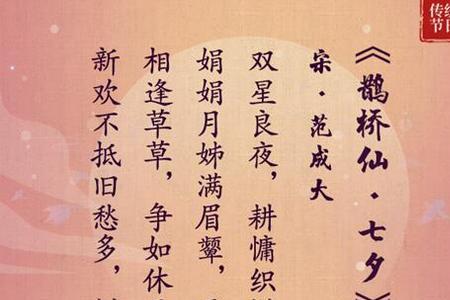 传统
节日
《鹊桥仙·七夕》
宋·范成大
双星良夜，耕慵织
娟娟月姊满眉颦，
相逢草草，争如休
新欢不抵旧愁多，